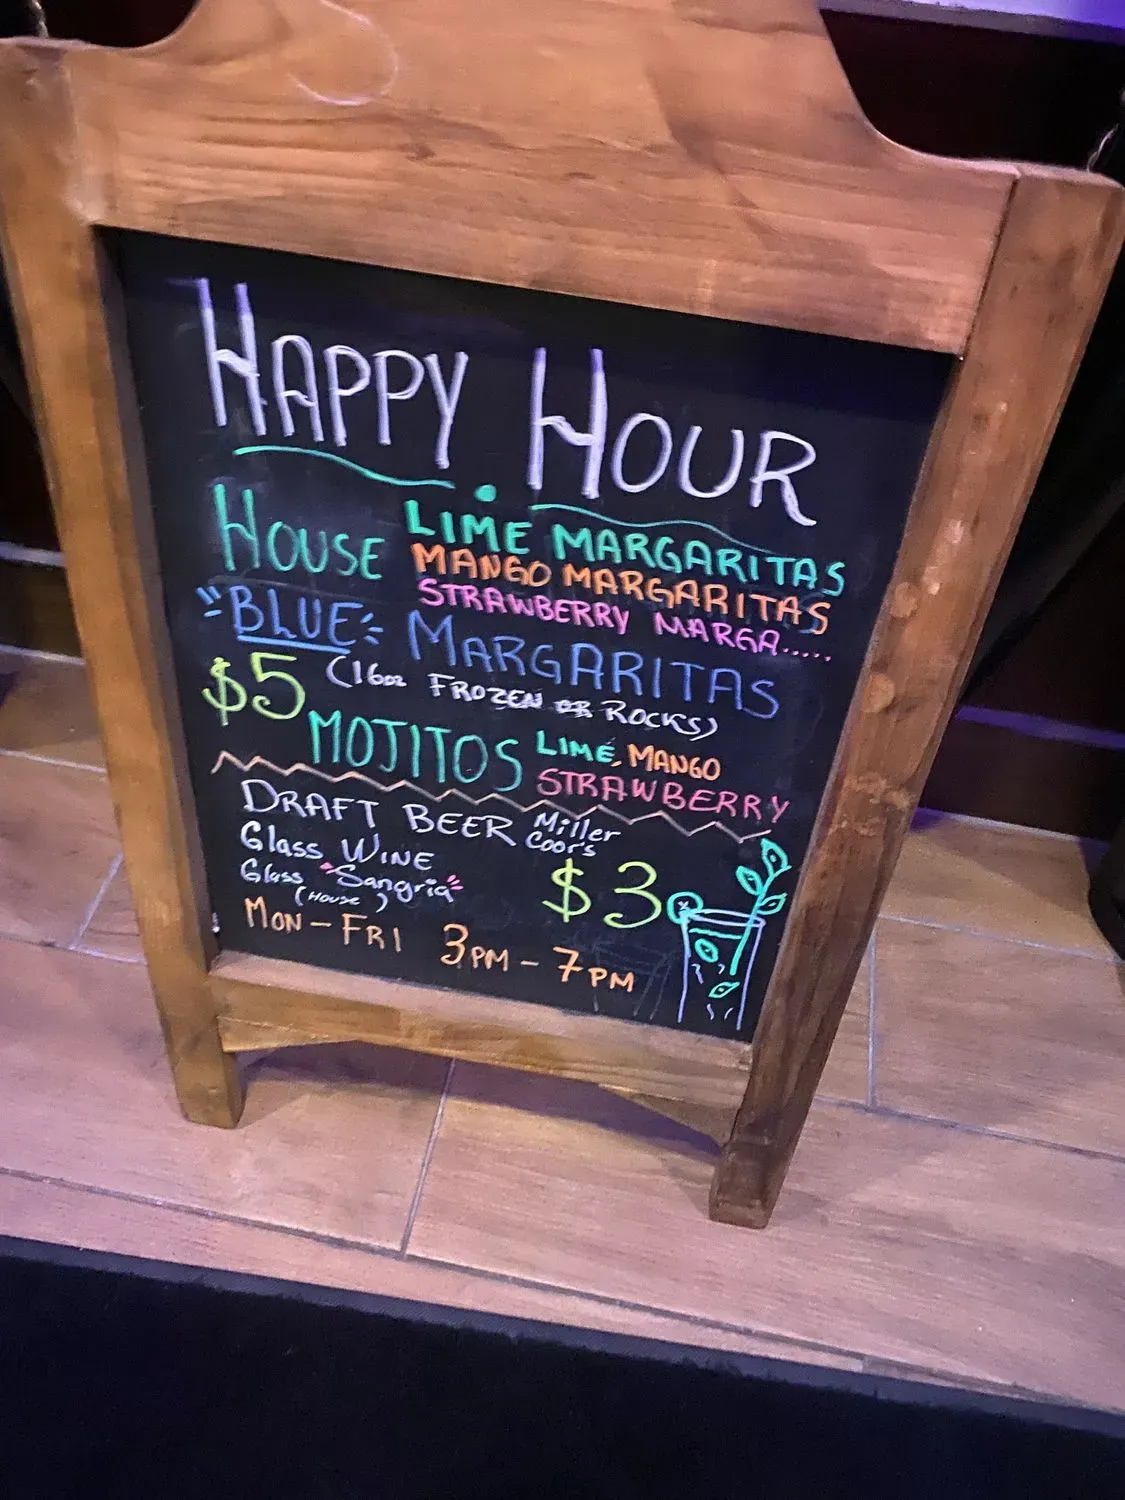 HAPPY HOUR
HOUSE LIME MARGARITAS
MANGO MARGARITAS
STRAWBERRY MARGA.....
"BLUE" MARGARITAS
$5 (16oz FROZEN OR ROCKS)
MOJITOS LIME, MANGO
STRAWBERRY
DRAFT BEER Miller
Coor's
Glass WINE
Glass "Sangria"
(HOUSE)
$3
MON-FRI 3PM-7PM